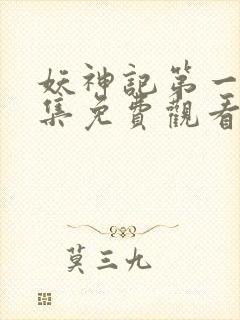 妖神記第一
集免費觀看
莫三九